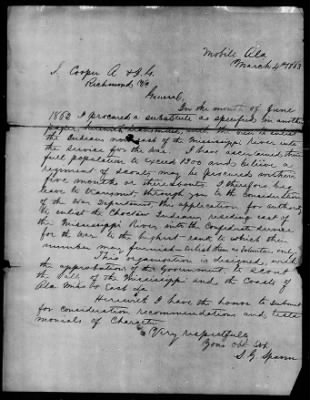 Mobile Ala
March 4th 1863
S. Cooper A & I. G.
Richmond, Va
General,
In the month of June
1862 I procured a substitute as specified in another
paper herewith
the Indians east of the Mississippi River into
the service for the war. I have ascertained their
full population to exceed 1300 and believe a
regiment of Indians may be procured within
five months or thereabouts. I therefore beg
leave to transmit through you to the consideration
of the War Department, this application for authority
to enlist the Choctaw Indians, residing east of
the Mississippi River, into the Confederate service
for the War to the highest to which their
number may furnish
This organization is designed, with
the approbation of the Government, to scout
the of the Mississippi and the Coasts of
Ala Miss &c East La
Herewith I have the honor to submit
for consideration recommendations and testi
monials of Character
Very respectfully
Your obt Svt
S. G. Spann